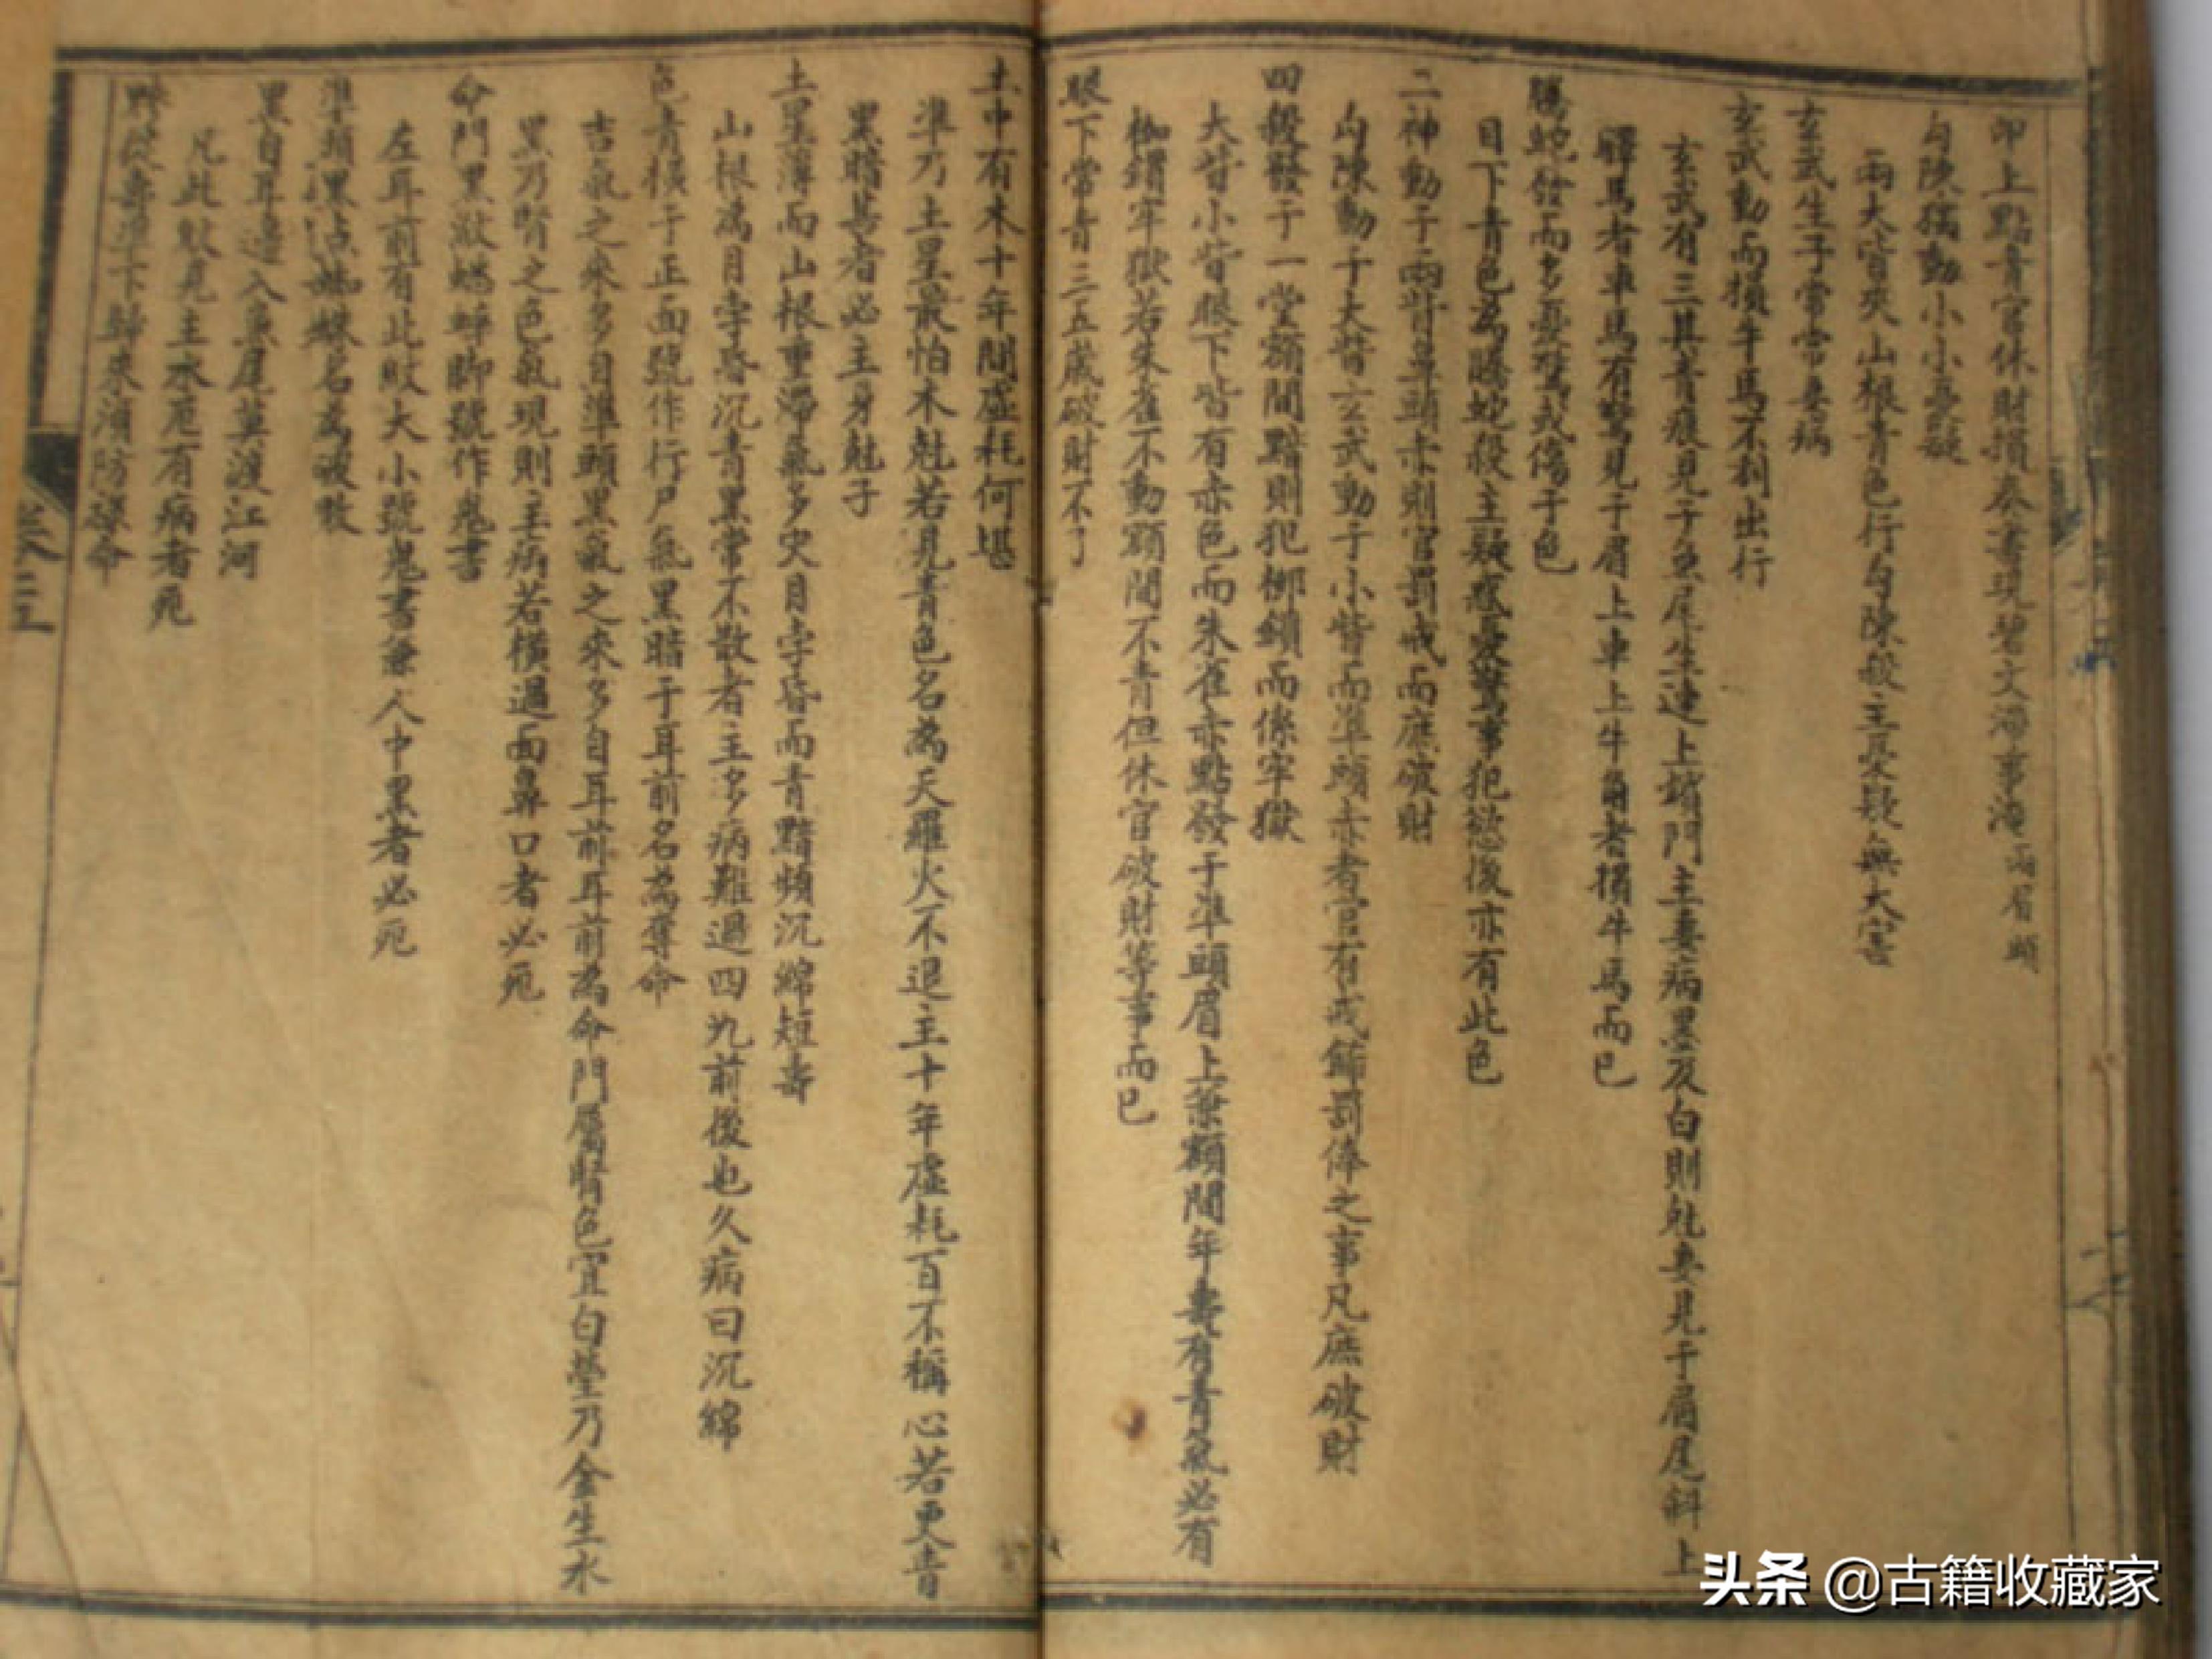 印上點青官休財損奏書現碧文滯事淹兩眉頭
勾陳獨動小小憂疑
兩大眥夾山根青色行勾陳殺主憂疑無大害
玄武生子常常妻病
玄武動而損牛馬不利出行
玄武有三其青痕見于魚尾生連上堵門主妻病墨及白則尅妻見于眉尾斜上
驛馬者車馬有驚見于眉上車上牛角者損牛馬而已
騰蛇發而多憂驚或傷于色
目下青色為騰蛇殺主疑惑憂驚事犯慾後亦有此色
二神動于兩眥準頭赤則官罰戒而庶破財
勾陳動于大眥玄武動于小眥而準頭赤者官有戒飾罰俸之事凡庶破財
四殺發于一堂額間黯則犯梆鎖而係牢獄
大眥小眥眼下皆有赤色而朱雀赤點發于準頭眉上兼額間年壽有青氣必有
枷鎖牢獄若朱雀不動額間不青但休官破財等事而已
眼下常青三五歲破財不了
土中有木十年間虛耗何堪
準乃土星最怕木尅若見青色名為天羅火不退主十年虛耗百不稱心若更青
黑暗甚者必主身尅子
土星薄而山根重滯氣多灾月孛昏而青黯頻沉綿短壽
山根為月孛昏沉青黑常不散者主多病難過四九前後也久病曰沉綿
色青橫于正面號作行尸氣黑暗于耳前名為奪命
吉氣之來多自準頭黑氣之來多自耳前耳前為命門屬腎色宜白瑩乃金生水
黑乃腎之色氣現則主病若橫過面鼻口者必死
命門黑散蟠蜉脚號作鬼書
左耳前有此敗大小號鬼書兼人中黑者必死
準頭黑點蜘蛛名為破敗
黑自耳邊入魚尾莫渡江河
凡此敗見主水厄有病者死
黔從壽準下歸來須防殞命
卷三
头条 @古籍收藏家